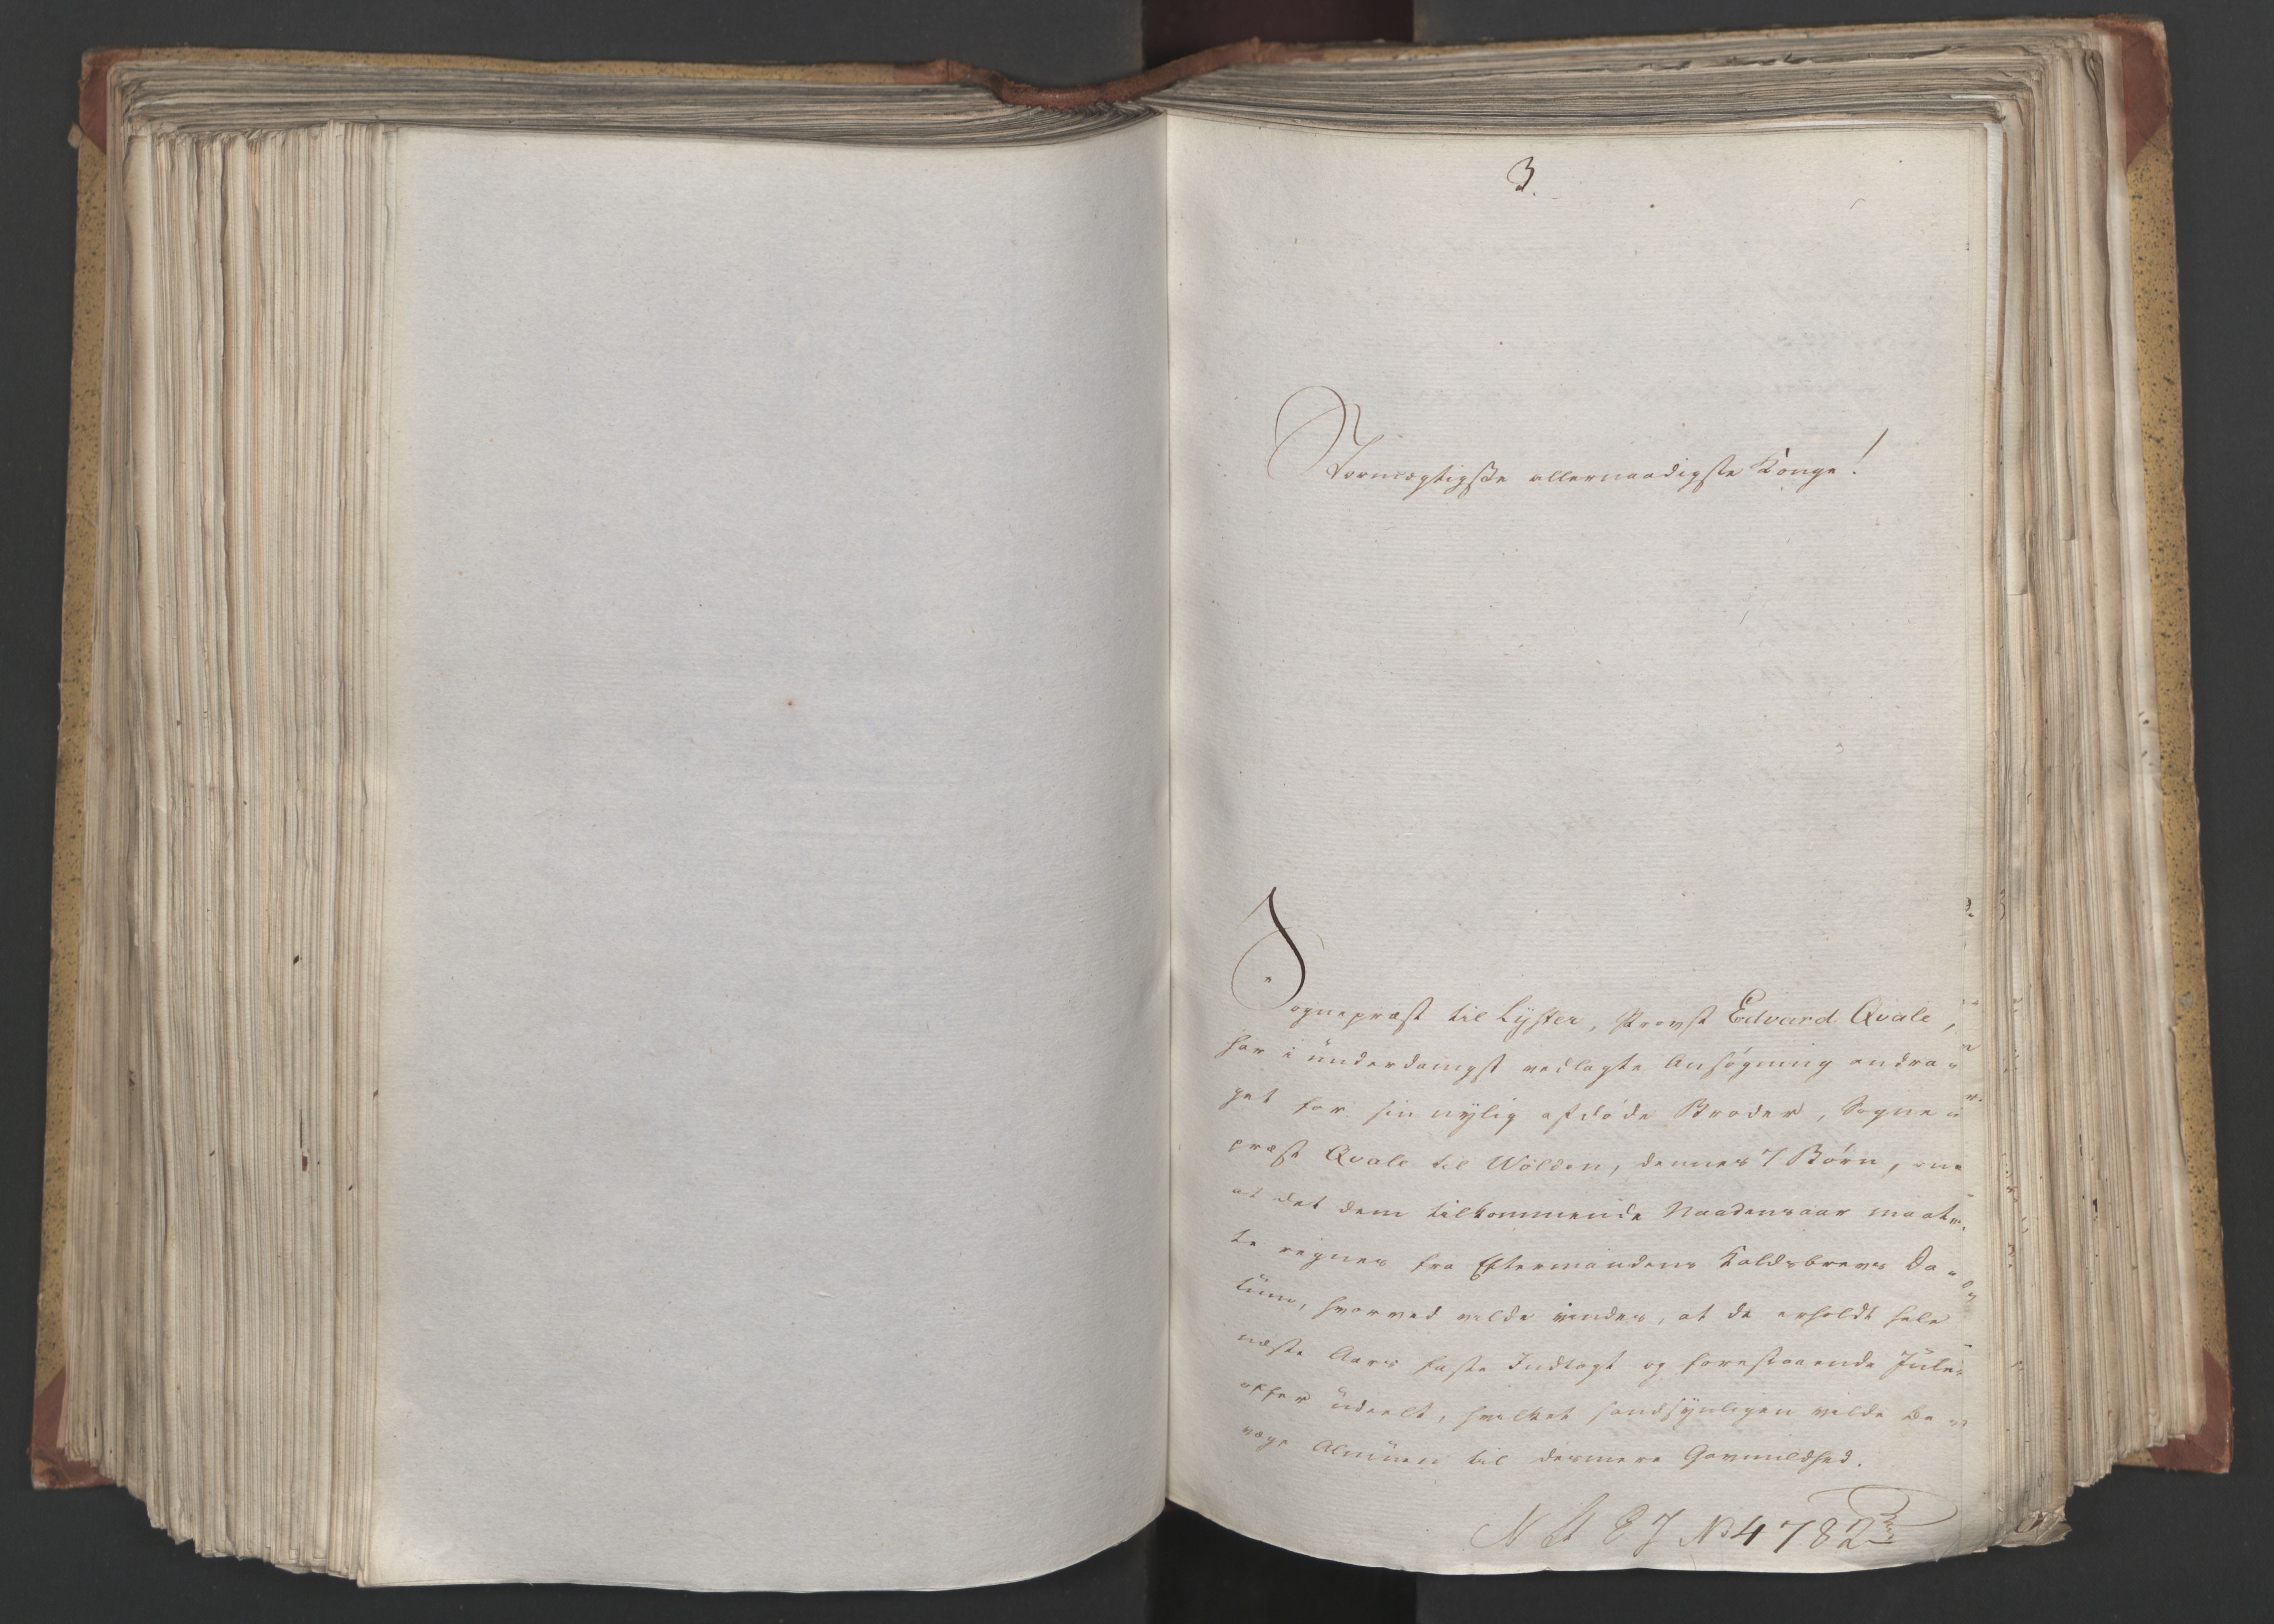 3.
Stormægtigste allernaadigste Konge!
Sognepræst til Lÿster, Provst Edvard Qvale,
har i ünderdanigst vedlagte Ansøgning andra-
get for sin nÿlig afdøde Broder, Sogne-
præst Qvale til Wolden, dennes 7 Børn, om
at det dem tilkommende Naadensaar maat-
te regnes fra Eftermandens Kaldsbrevs Da-
tüm, hvorved vilde vindes, at de erholdt hele
næste Aars faste Indtægt og forestaaende Jüle-
offer üdeelt, hvilket sandsÿnligen vilde be-
væge Almüen til desmere Gavmildhed.
No 4782